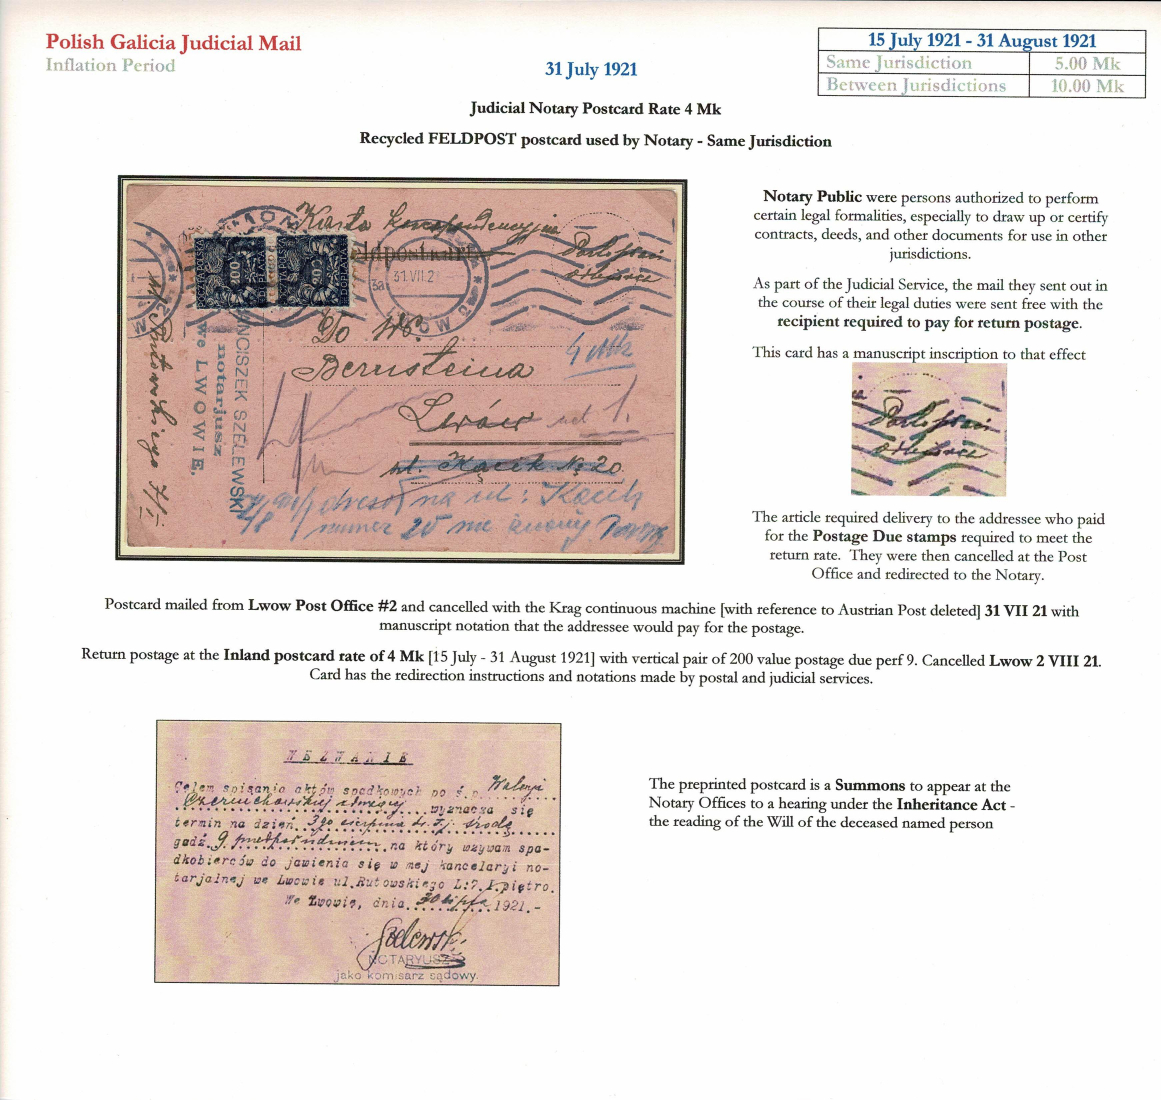 Polish Galicia Judicial Mail
Inflation Period
31 July 1921
15 July 1921 - 31 August 1921
Same Jurisdiction 5.00 Mk
Between Jurisdictions 10.00 Mk
Judicial Notary Postcard Rate 4 Mk
Recycled FELDPOST postcard used by Notary - Same Jurisdiction
Karta Korespondencyjna
ldpostkart
31 VII 2
200
200
Do WP.
4 Mk
Bernsteina
Lwów
ul. Kącik № 20
FRANCISZEK SZELEWSKI
notarjusz
we LWOWIE.
na ul: Kącik
numer 20 nie znany
Notary Public were persons authorized to perform
certain legal formalities, especially to draw up or certify
contracts, deeds, and other documents for use in other
jurisdictions.
As part of the Judicial Service, the mail they sent out in
the course of their legal duties were sent free with the
recipient required to pay for return postage.
This card has a manuscript inscription to that effect
The article required delivery to the addressee who paid
for the Postage Due stamps required to meet the
return rate. They were then cancelled at the Post
Office and redirected to the Notary.
Postcard mailed from Lwow Post Office #2 and cancelled with the Krag continuous machine [with reference to Austrian Post deleted] 31 VII 21 with
manuscript notation that the addressee would pay for the postage.
Return postage at the Inland postcard rate of 4 Mk [15 July - 31 August 1921] with vertical pair of 200 value postage due perf 9. Cancelled Lwow 2 VIII 21.
Card has the redirection instructions and notations made by postal and judicial services.
WEZWANIE
Celem spisania aktów spadkowych po ś.p. Walerji
wyznacza się
termin na dzień 3go sierpnia b.r. środę
godz. 9 przedpołudniem na który wzywam spa-
dkobierców do jawienia się w mej kancelaryi no-
tarjalnej we Lwowie ul.Rutowskiego L:7.I.piętro.
We Lwowie, dnia 30 lipca 1921.-
NOTARYUSZ
jako komisarz sądowy.
The preprinted postcard is a Summons to appear at the
Notary Offices to a hearing under the Inheritance Act -
the reading of the Will of the deceased named person